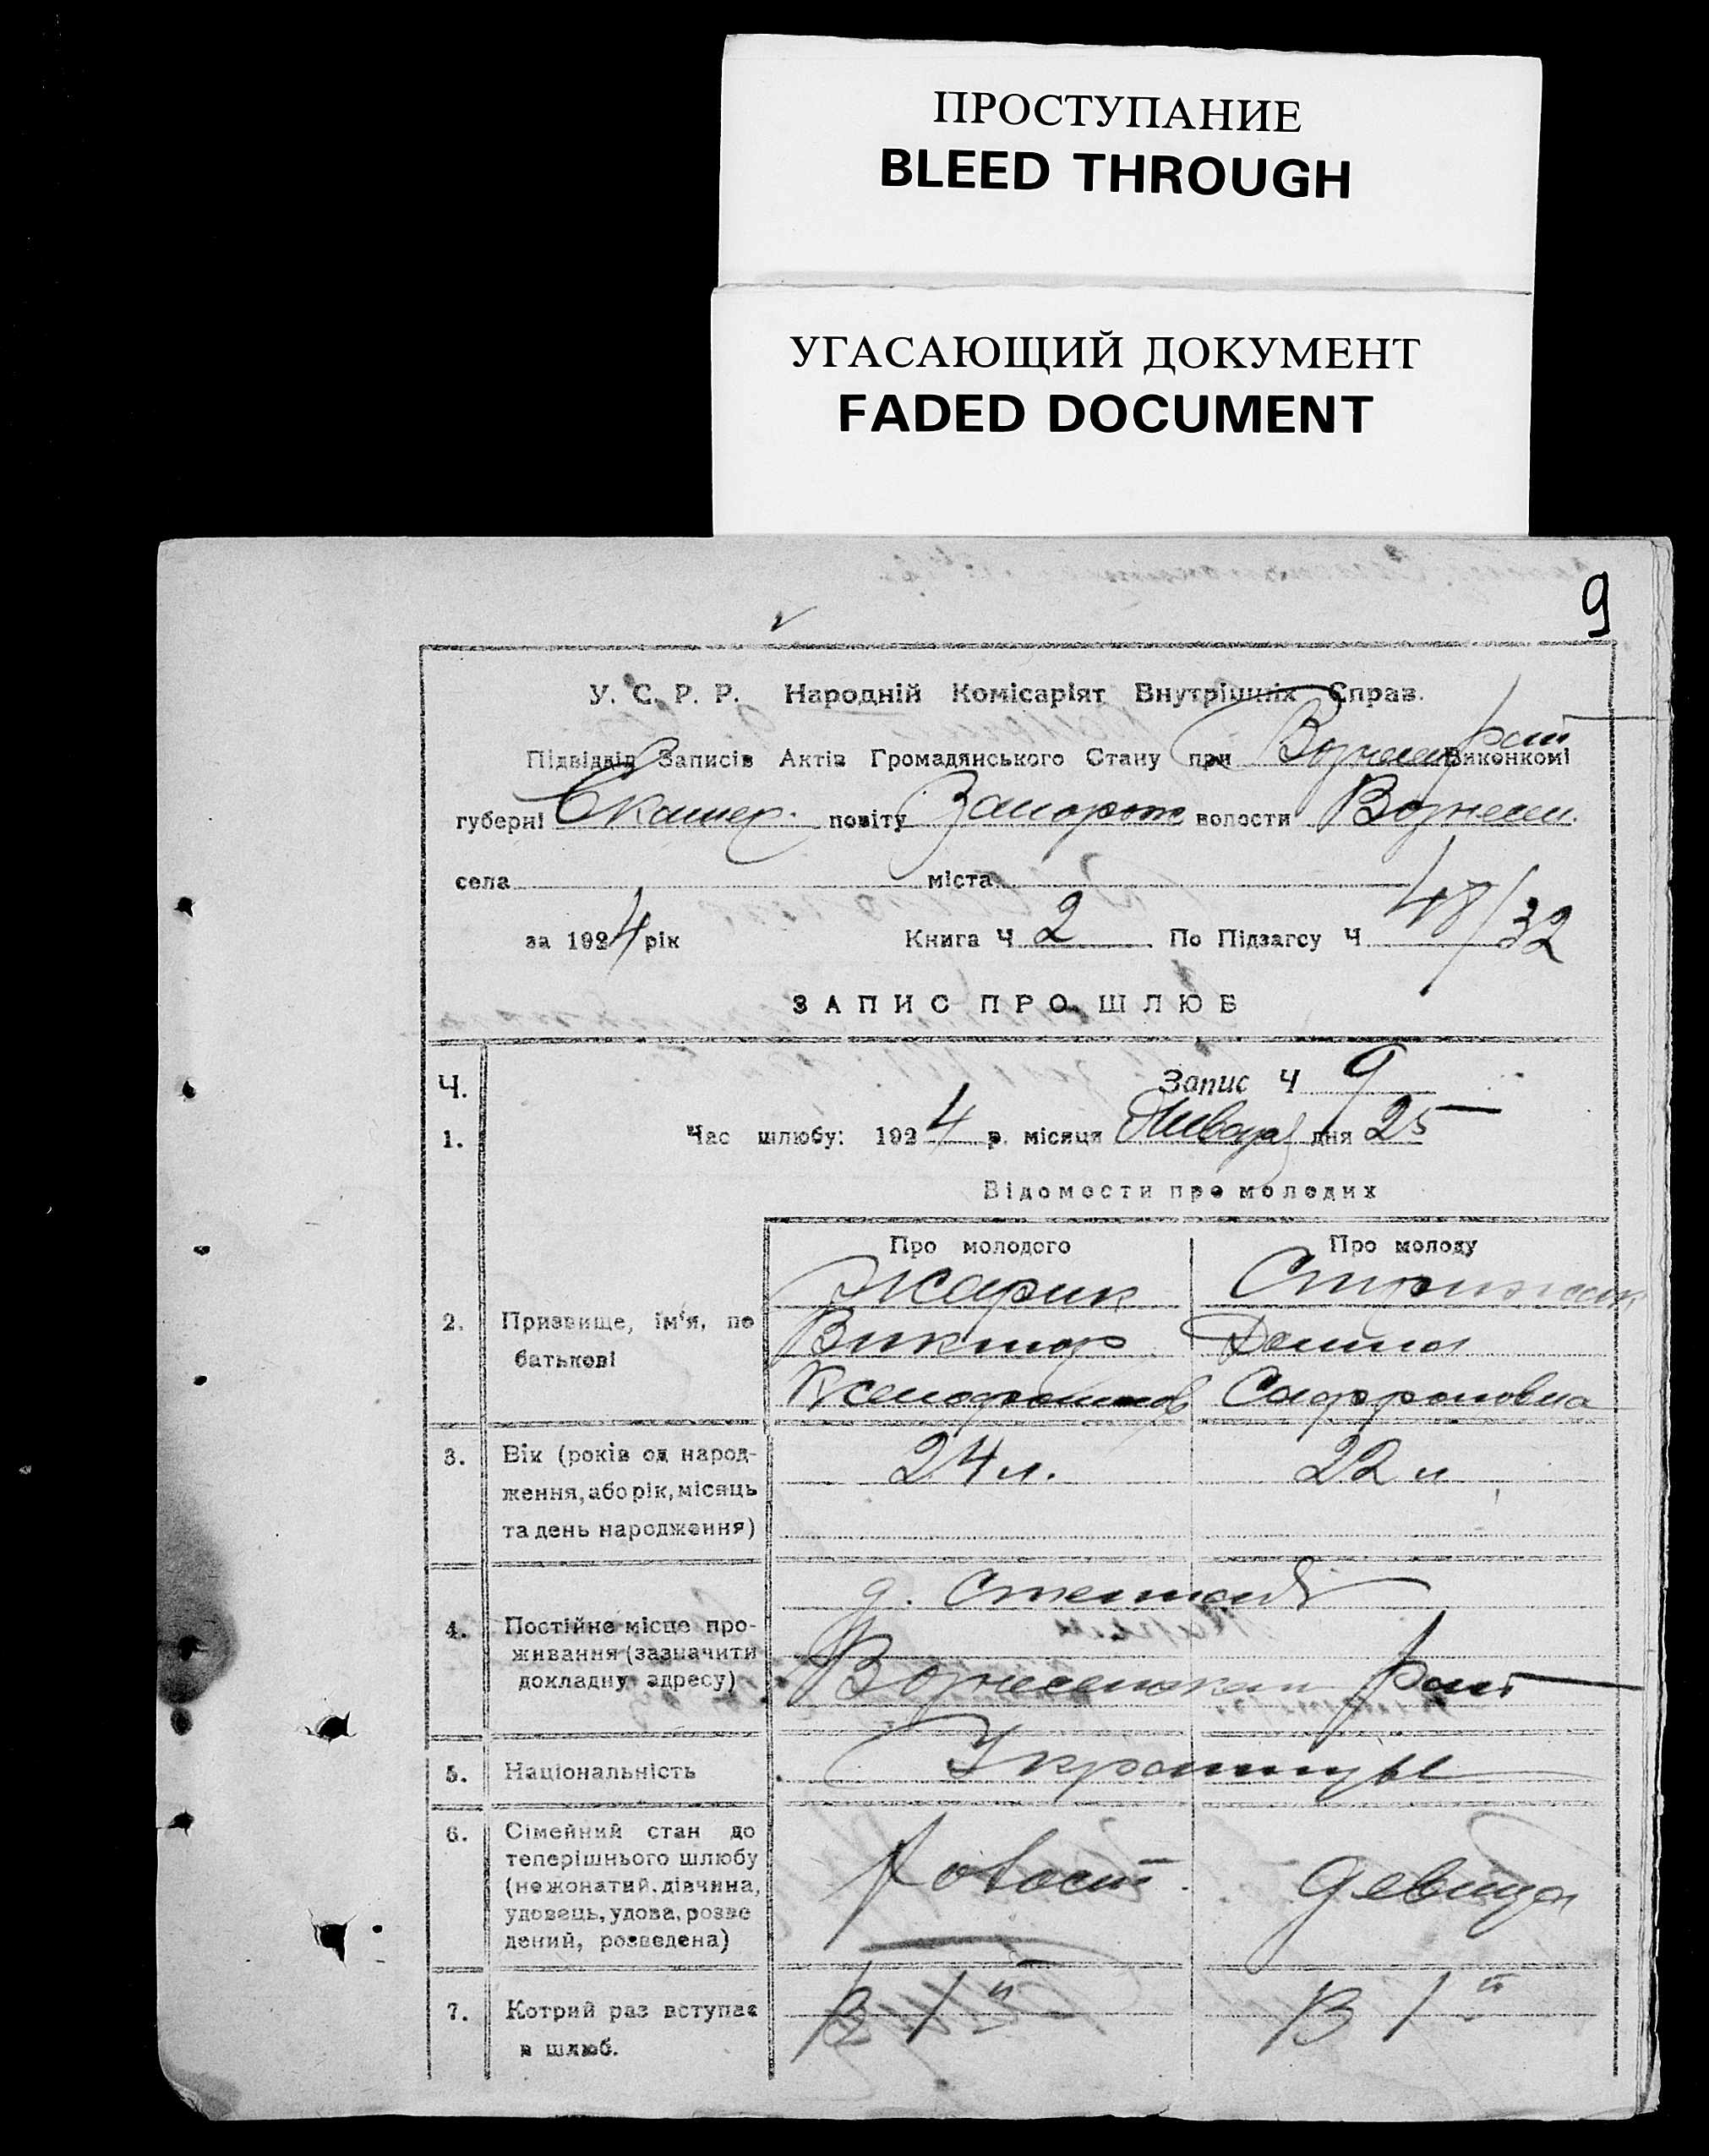 ПРОСТУПАНИЕ
BLEED THROUGH
УГАСАЮЩИЙ ДОКУМЕНТ
FADED DOCUMENT
9
У. С. Р. Р. Народній Комісаріят Внутрішніх Справ.
Підвідділ Записів Актів Громадянського Стану при Вознесен рай Виконкомі
губерні Екатер. повіту Запорож волости Вознесен.
села міста
за 1924 рік Книга Ч 2 По Підзагсу Ч 48/32
ЗАПИС ПРО ШЛЮБ
Ч. Запис Ч 9
1. Час шлюбу: 1924 р. місяця Января дня 25
Відомости про молодих
Про молодого Про молоду
Жарик Стрижак
2. Призвище, ім'я, по Виктор
батькові Ксенофонтов Сафроновна
3. Вік (років од народ- 24 л. 22 л
ження, або рік, місяць
та день народження)
д.
4. Постійне місце про-
живання (зазначити Вознесенскаи рай
докладну адресу)
5. Національність Украинцы
6. Сімейний стан до
теперішнього шлюбу
(нежонатий, дівчина, холост. девица
удовець, удова, розве
дений, розведена)
7. Котрий раз вступає В 1й В 1й
в шлюб.